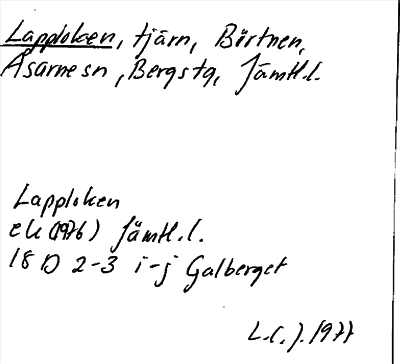 Lapploken, tjärn, Börtnen,
Åsarne sn, Bergs tg, Jämtl.l.
Lapploken
ek (1976) Jämtl.l.
18 D 2-3 i-j Galberget
L.C.J. 1977